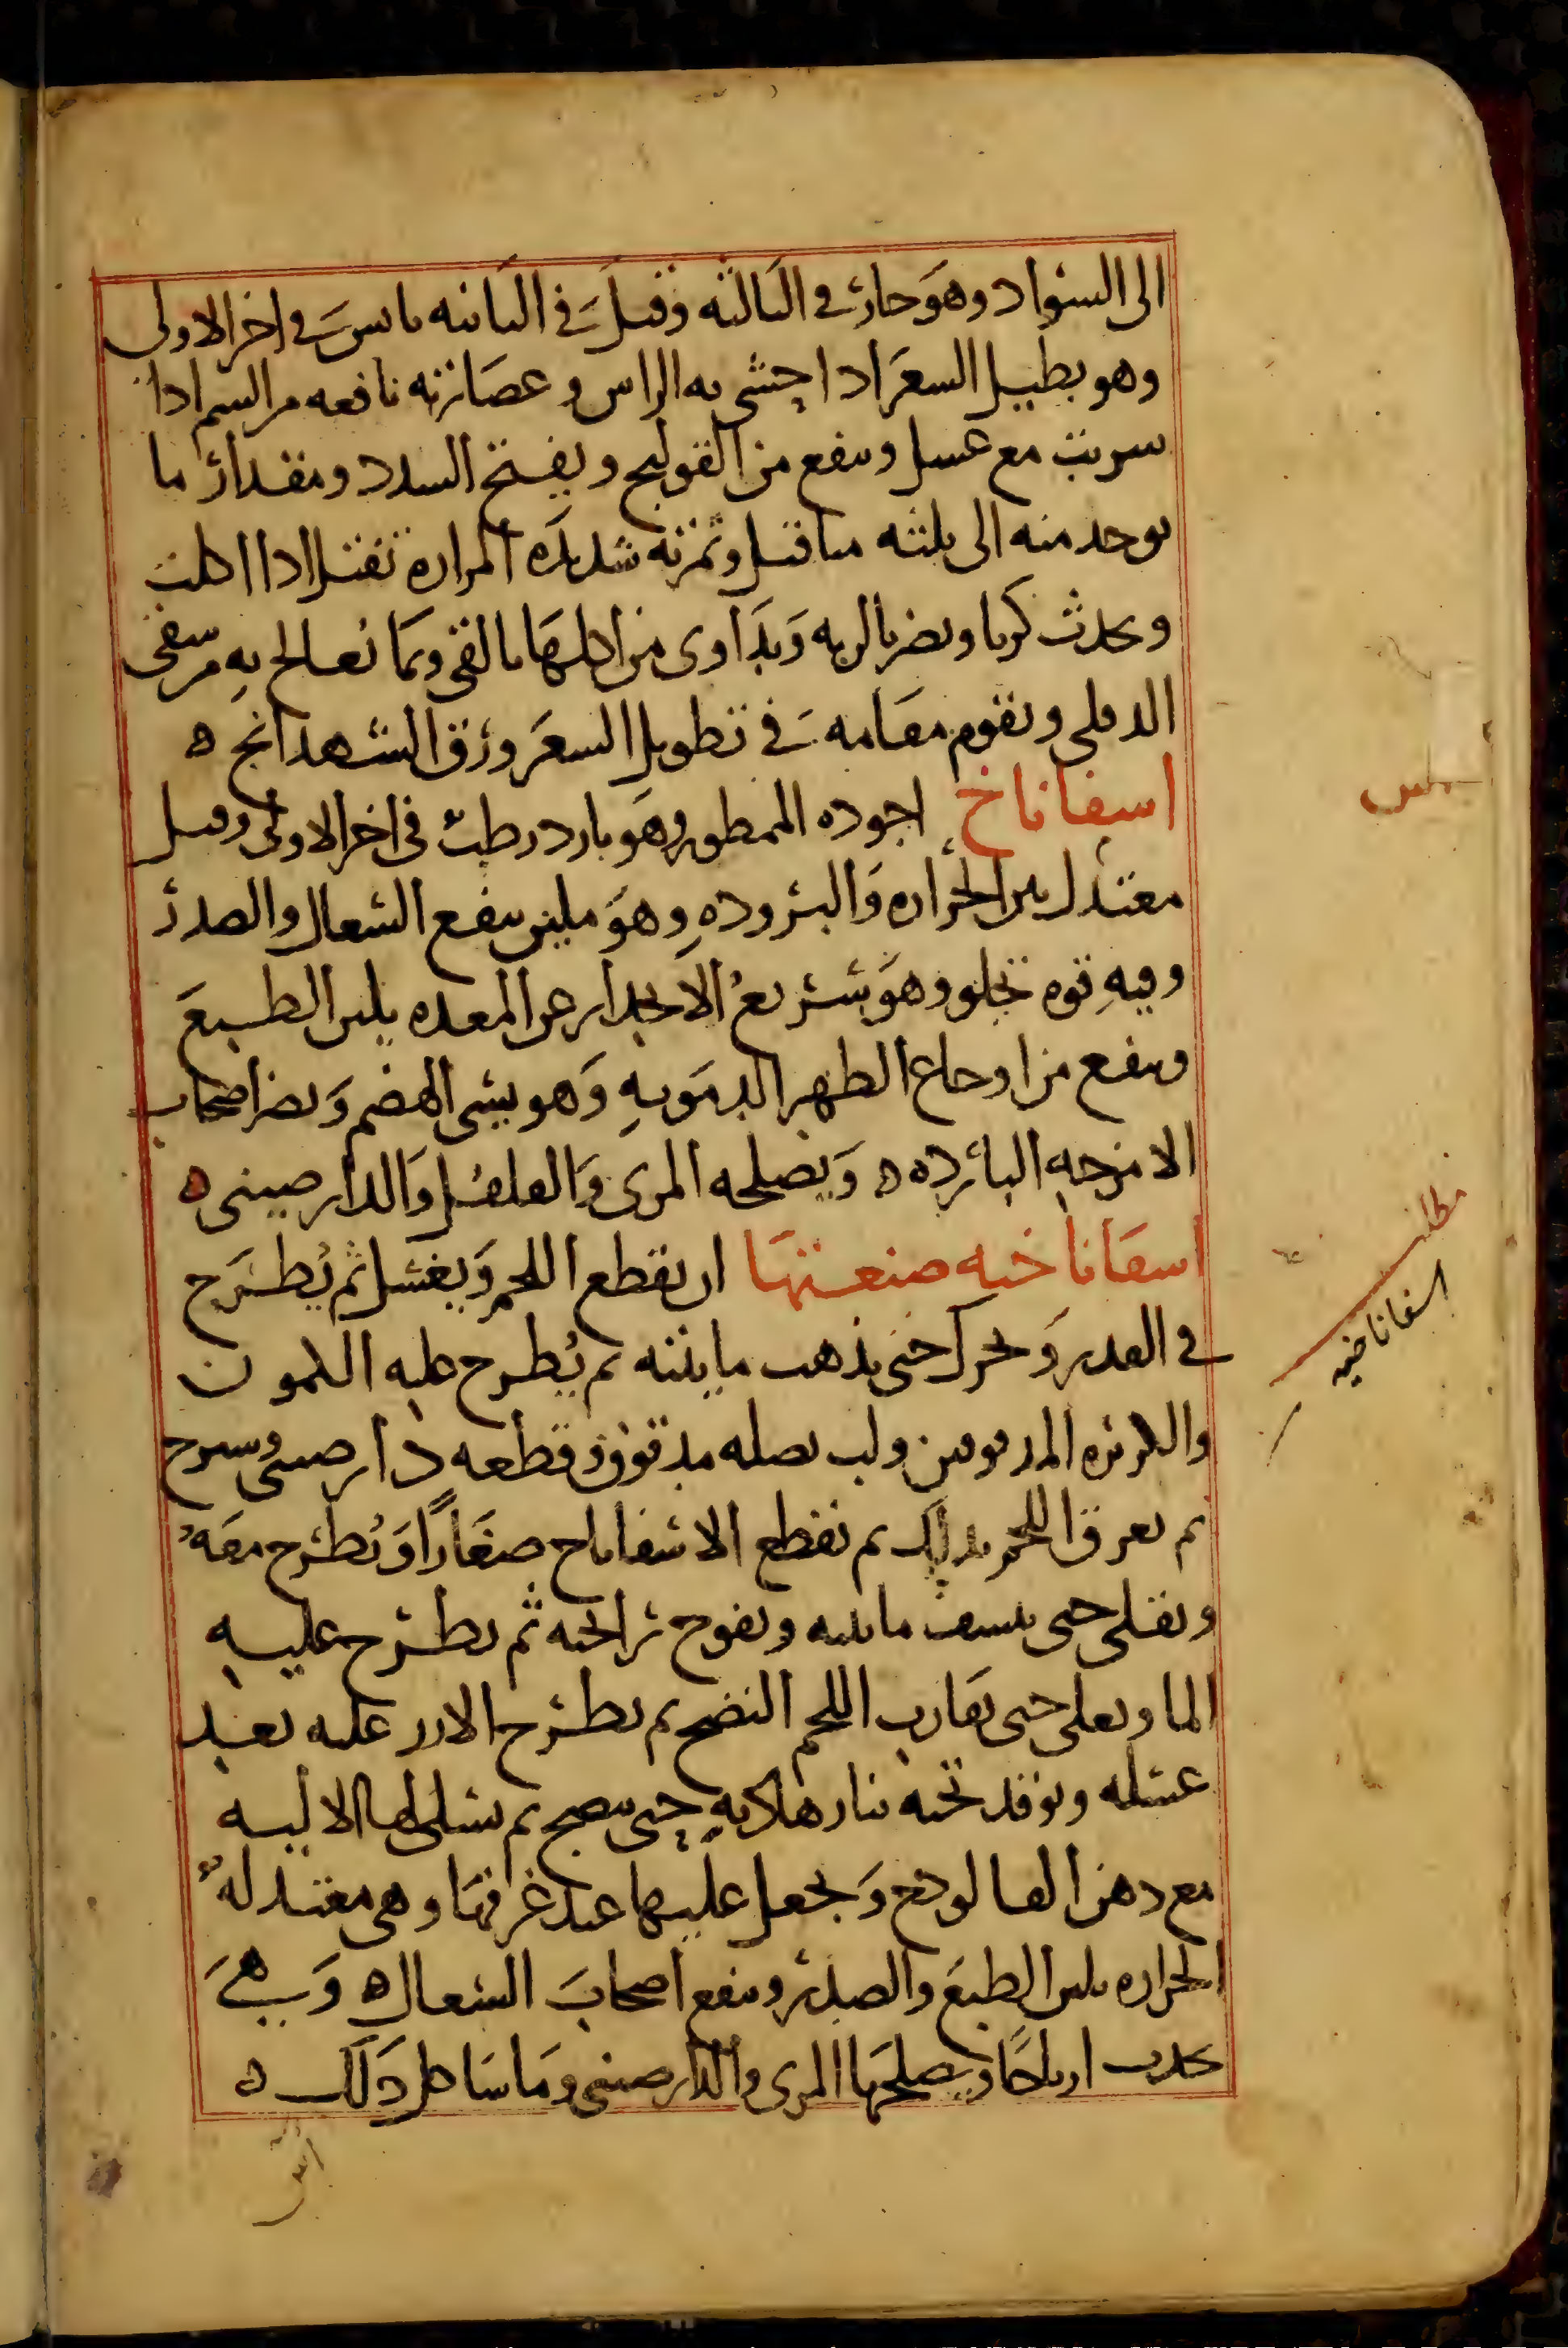 الى السواد وهو حار في الثالثه وقيل في الثانيه يابس في اخر الاولى
وهو يطيل الشعر اذا حشى به الراس وعصارته نافعه من السم اذا
شربت مع عسل وينفع من القولنج ويفتح السدد ومقدار ما
يوخذ منه الى ثلثه مثاقيل وثمرته شديده المراره تقتل اذا اكلت
وتحدث كربا وتضر بالريه ويداوى من اكلها بالقي وبما يعالج به من سقي
الدفلى ويقوم مقامه في تطويل الشعر ورق الشهدانج ه
اسفاناخ اجوده الممطور وهو بارد رطب في اخر الاولى وقيل
معتدل بين الحراره والبروده وهو ملين ينفع السعال والصدر
وفيه قوه تجلو وهو سريع الانحدار عن المعده يلين الطبع
وينفع من اوجاع الظهر الدمويه وهو يسي الهضم ويضر اصحاب
الامزجه البارده ه ويصلحه المرى والفلفل والدارصينى ه
اسفاناخيه صنعتها ان يقطع اللحم ويغسل ثم يطرح
في القدر ويحرك حتى يذهب مايته ثم يطرح عليه الكمون
والكزبره المدقوقين ولب بصله مدقوق وقطعه دارصينى وسيرج
ثم يعرق اللحم بذلك ثم يقطع الاسفاناخ صغارا ويطرح معه
ويقلى حتى ينشف مائيه ويفوح رائحته ثم يطرح عليه
الما ويغلى حتى يقارب اللحم النضج ثم يطرح الارز عليه بعد
غسله ويوقد تحته بنار هاديه حتى ينضج ثم يسلى لها الاليه
مع دهن الفالوذج ويجعل عليها عند غرفها وهي معتدله
الحراره تلين الطبع والصدر وينفع اصحاب السعال ه وهي
تحدث ارياحا ويصلحها المرى والدارصينى وما شاكل ذلك ه
مطلب
اسفاناخيه